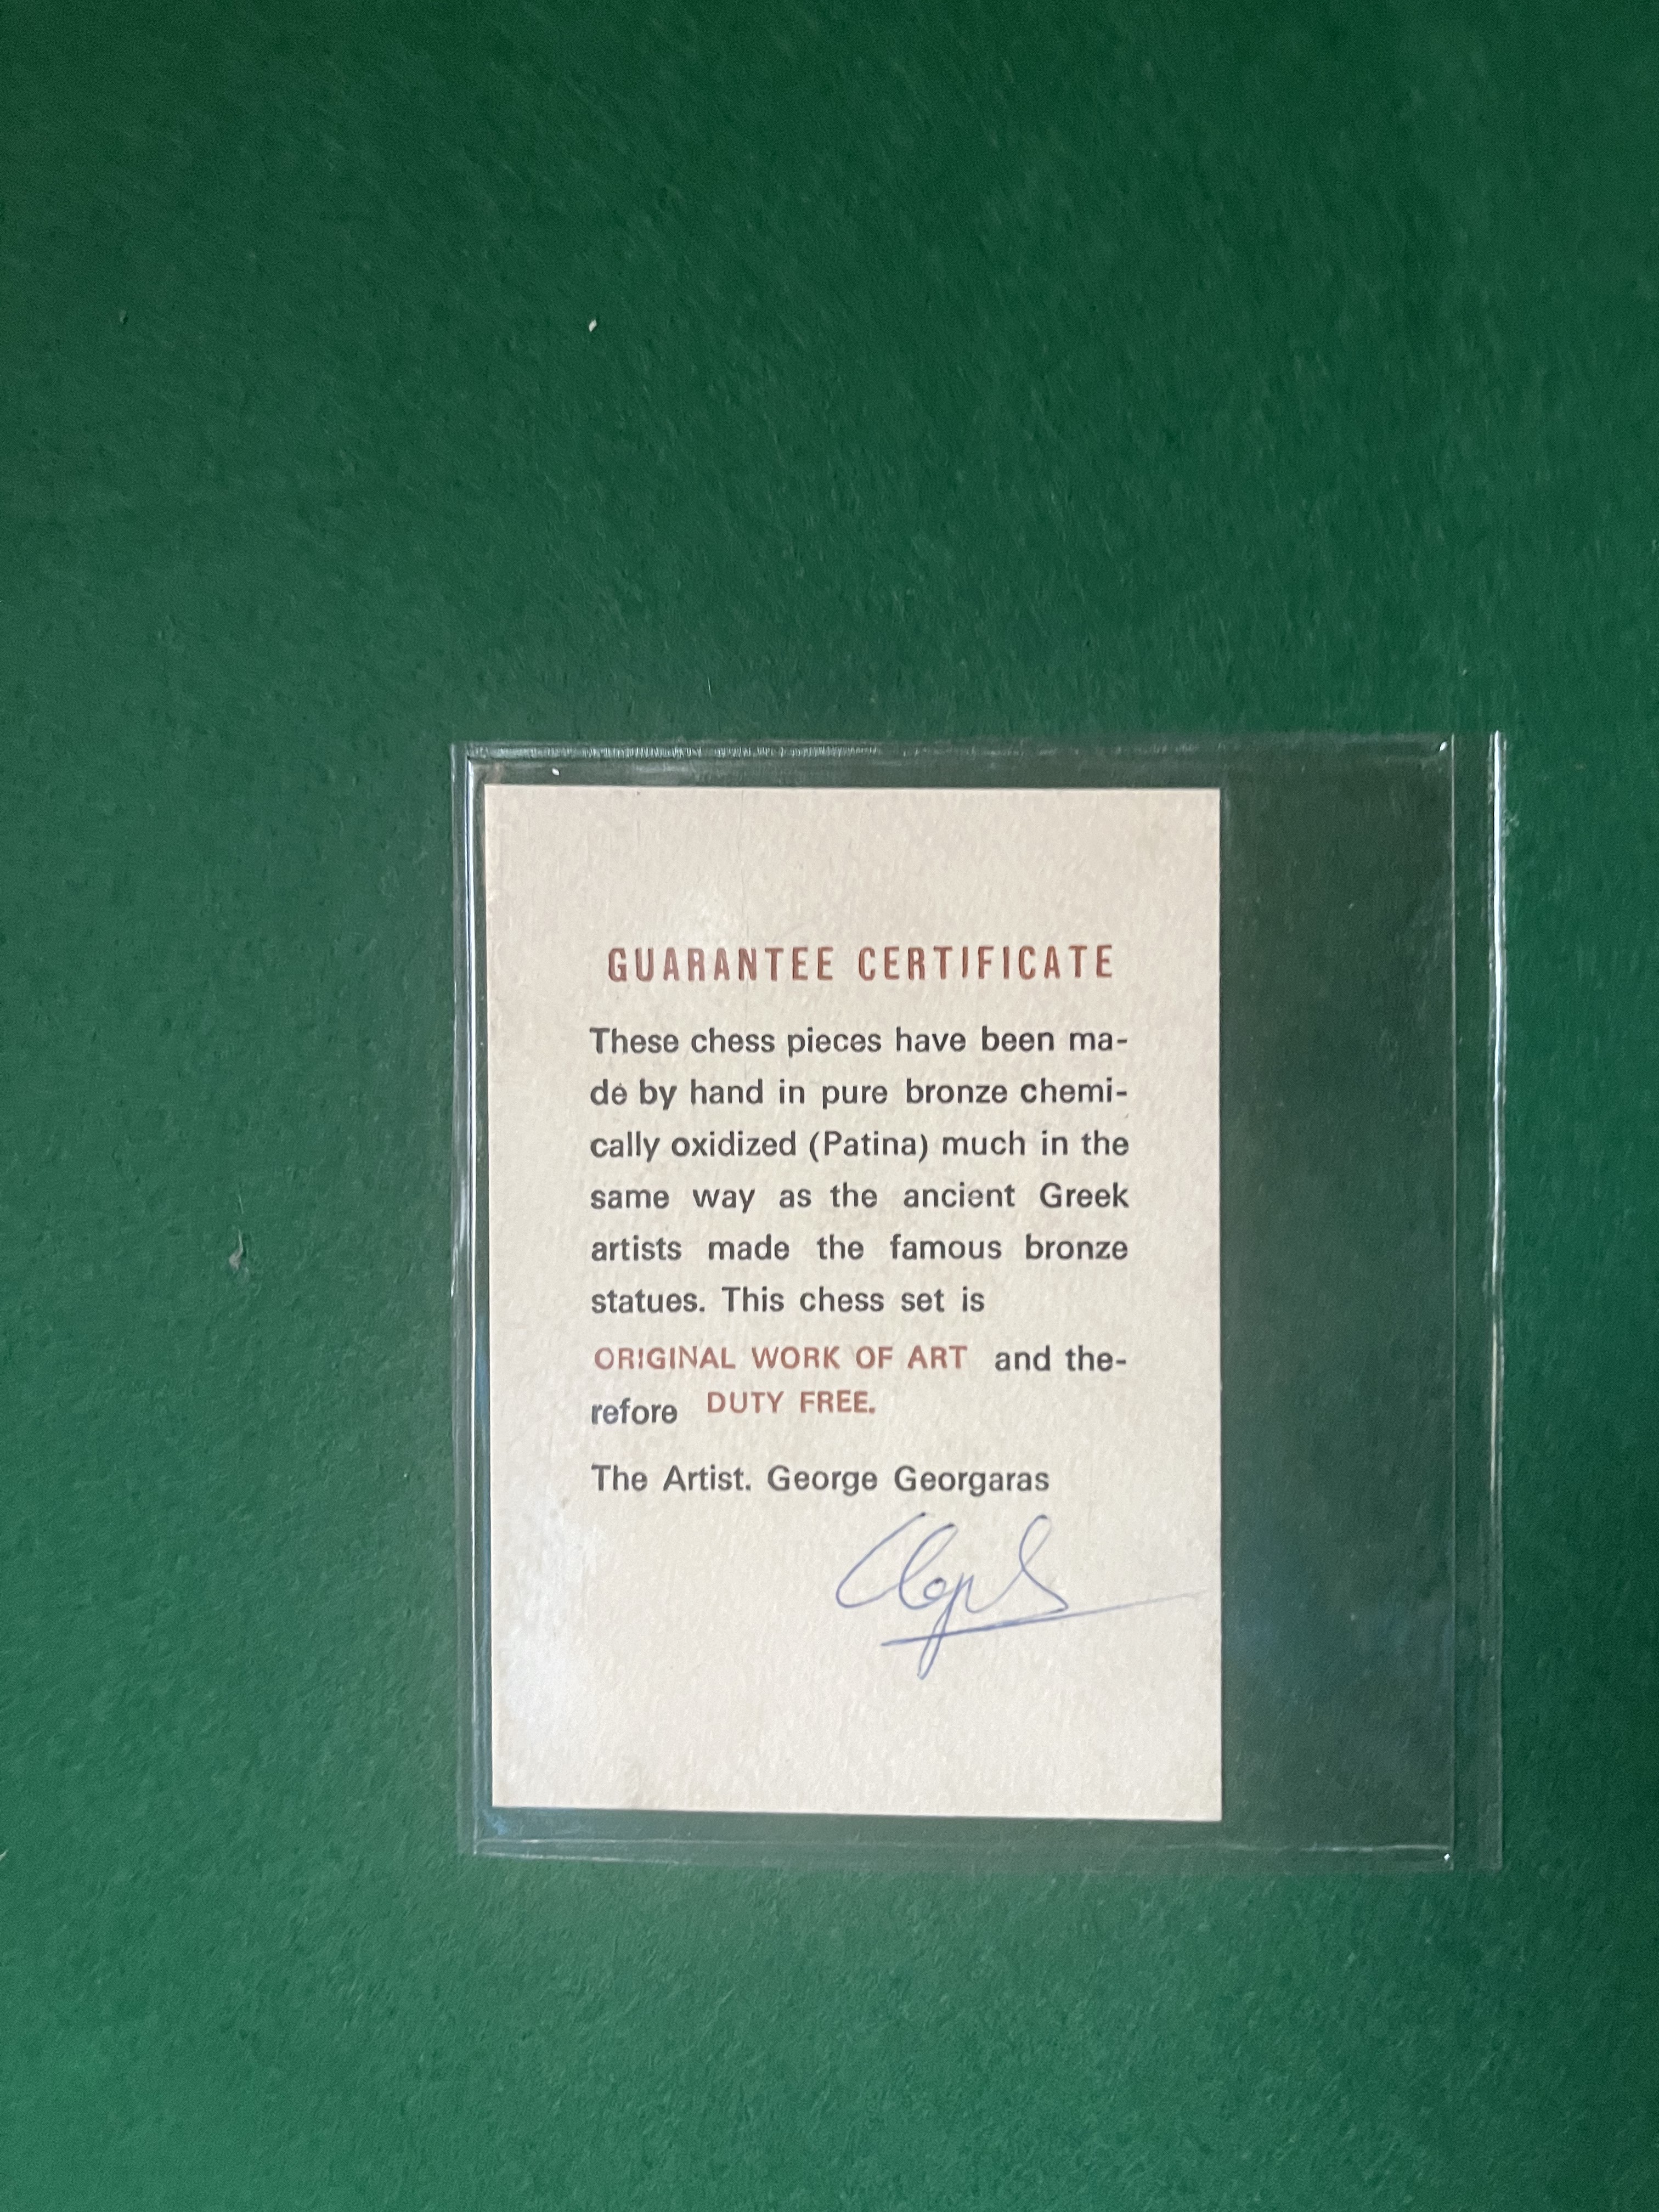 GUARANTEE CERTIFICATE
These chess pieces have been ma-
de by hand in pure bronze chemi-
cally oxidized (Patina) much in the
same way as the ancient Greek
artists made the famous bronze
statues. This chess set is
ORIGINAL WORK OF ART and the-
refore DUTY FREE.
The Artist. George Georgaras